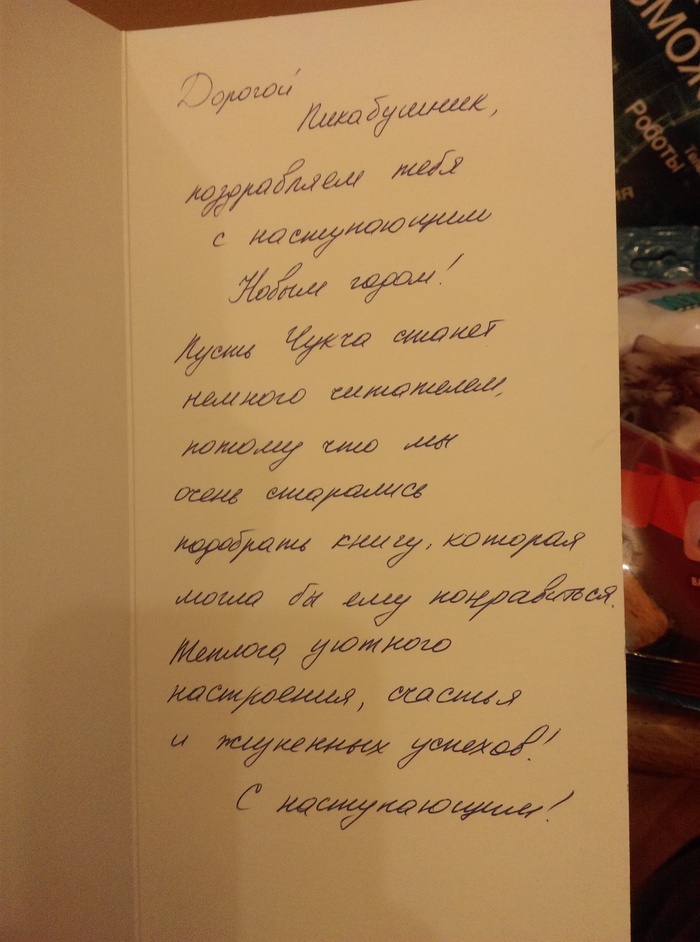 Дорогой
Пикабушник,
поздравляем тебя
с наступающим
Новым годом!
Пусть Чукча станет
немного читателем,
потому что мы
очень старались
подобрать книгу, которая
могла бы ему понравиться.
Теплого, уютного
настроения, счастья
и жизненных успехов!
С наступающим!
Роботы